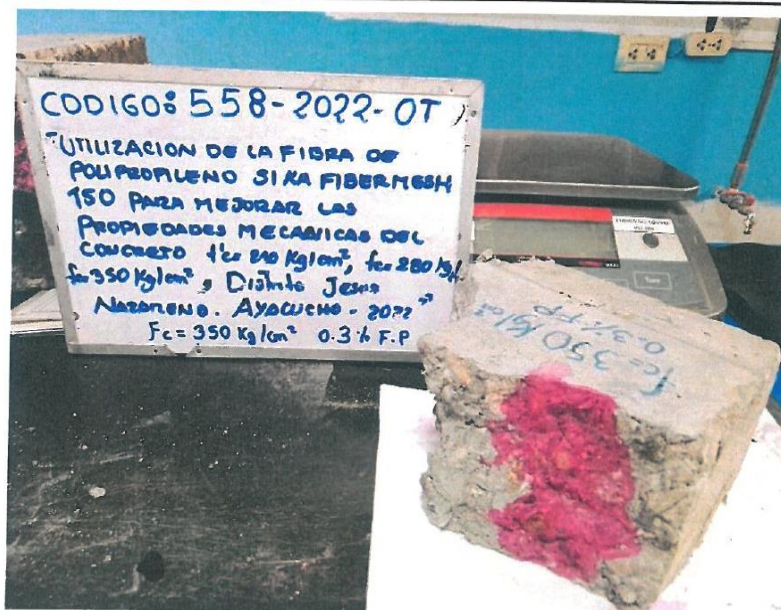 CODIGO: 558-2022-OT
"UTILIZACION DE LA FIBRA DE
POLIPROPILENO SIKA FIBERMESH
150 PARA MEJORAR LAS
PROPIEDADES MECANICAS DEL
CONCRETO f'c= 210 Kg/cm², fc= 280 Kg/
fc= 350 Kg/cm², Distrito Jesus
NAZARENO. AYACUCHO - 2022"
Fc = 350 Kg/cm² 0.3% F.P
fc= 350 Kg/cm²
0.3% FP